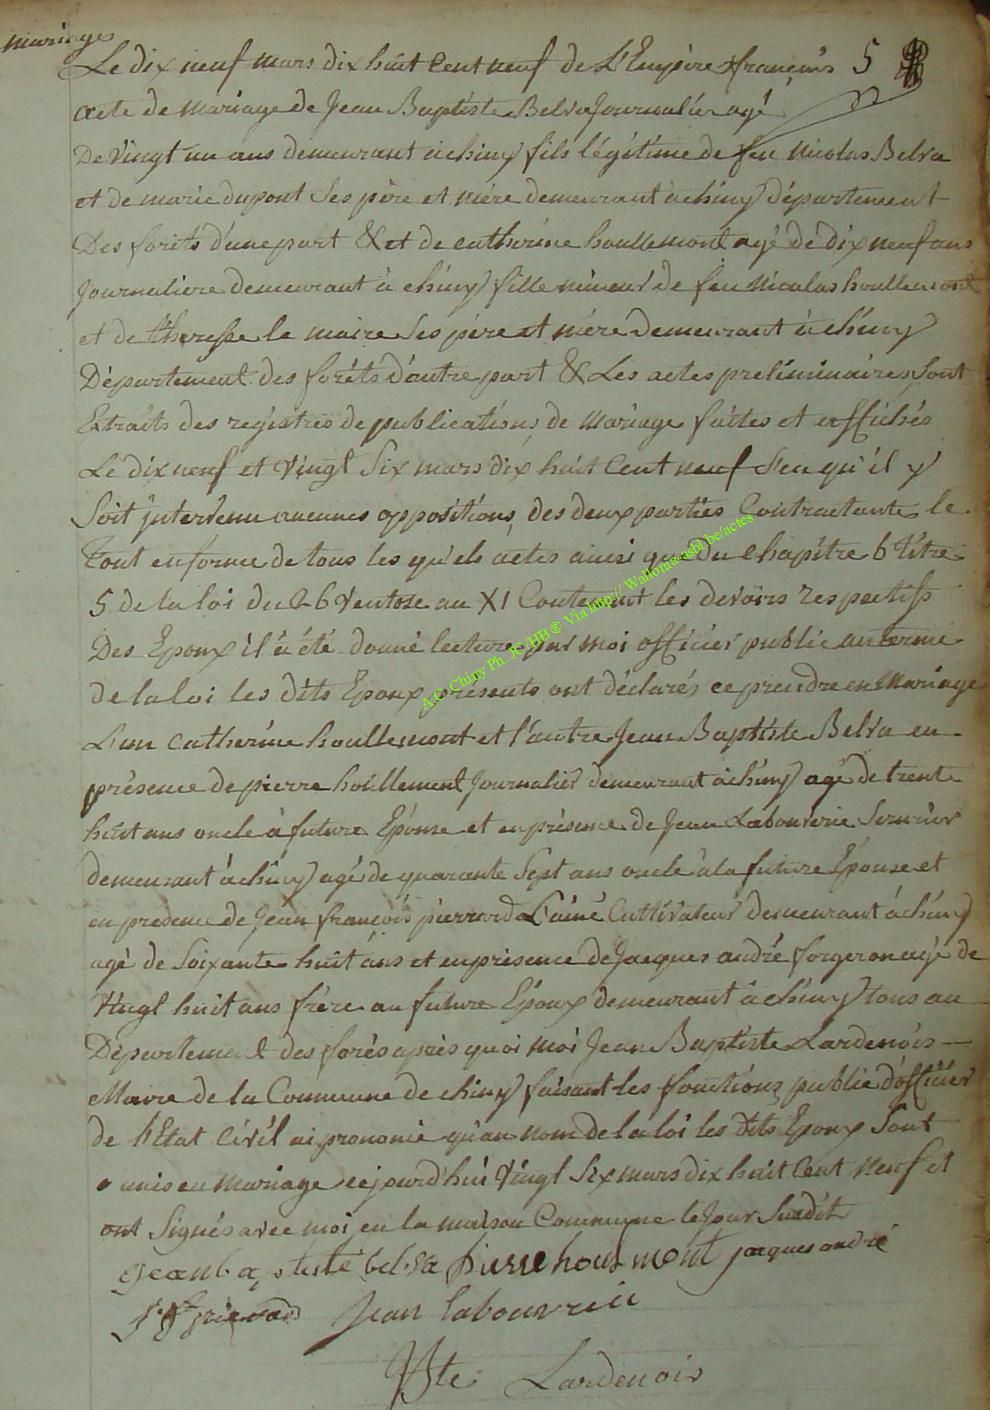 mariages
Le dix neuf mars dix huit Cent neuf de L'Empire françois 5
acte de mariage de Jean Baptiste Belva Journalier agé
De Vingt un ans demeurant à chiny fils légitime de feu Nicolas Belva
et de marie dupont Ses père et mère demeurant à chiny département
Des forêts d'une part & et de catherine houllemont agé de dix neuf ans
Journaliere demeurant à chiny fille mineur de feu Nicolas houllemont
et de therese le maire Ses père et mère demeurant à chiny
Département des forêts d'autre part & Les actes preliminaires Sont
Extraits des registres de publications de mariage faites et affichés
Le dix neuf et Vingt Six mars dix huit Cent neuf S'en qu'il y
Soit intervenu aucunes oppositions des deux parties Contractante le
tout en forme de tous les qu'els actes ainsi que du chapitre 6 titre
5 de la loi du 26 Ventose an XI Contenant les devoirs respectifs
Des Epoux il à été donné lecture par moi officier public au terme
de la loi les dits Epoux présents ont déclarés ce prendre en Mariage
L'un catherine houllemont et l'autre Jean Baptiste Belva en
présence de pierre houllemont Journalier demeurant à chiny agé de trente
huit ans oncle à future Epouse et en présence de Jean Labouverie
demeurant à chiny agé de quarante Sept ans oncle à la future Epouse et
en presence de Jean françois pierrard L'ainé Cultivateur demeurant à chiny
agé de Soixante huit ans et en présence de Jacques andré forgeron agé de
Vingt huit ans frère au future Epoux demeurant à chiny tous au
Département des forès après quoi moi Jean Baptiste Lardenois
Maire de la Commune de chiny faisant les fonctions public d'officier
de l'Etat Civil ai prononcé qu'au nom de la loi les dits Epoux Sont
unis en mariage cejourd'hui Vingt Six mars dix huit Cent neuf et
ont Signés avec moi en la maison Commune le Jour Susdit
jean baptiste belva pierre houlmont jacques andré
Jean labouvrie
Bte Lardenois
A.C. Chiny Ph. JC/HB® Via http:// Wallonia-asbl.be/actes